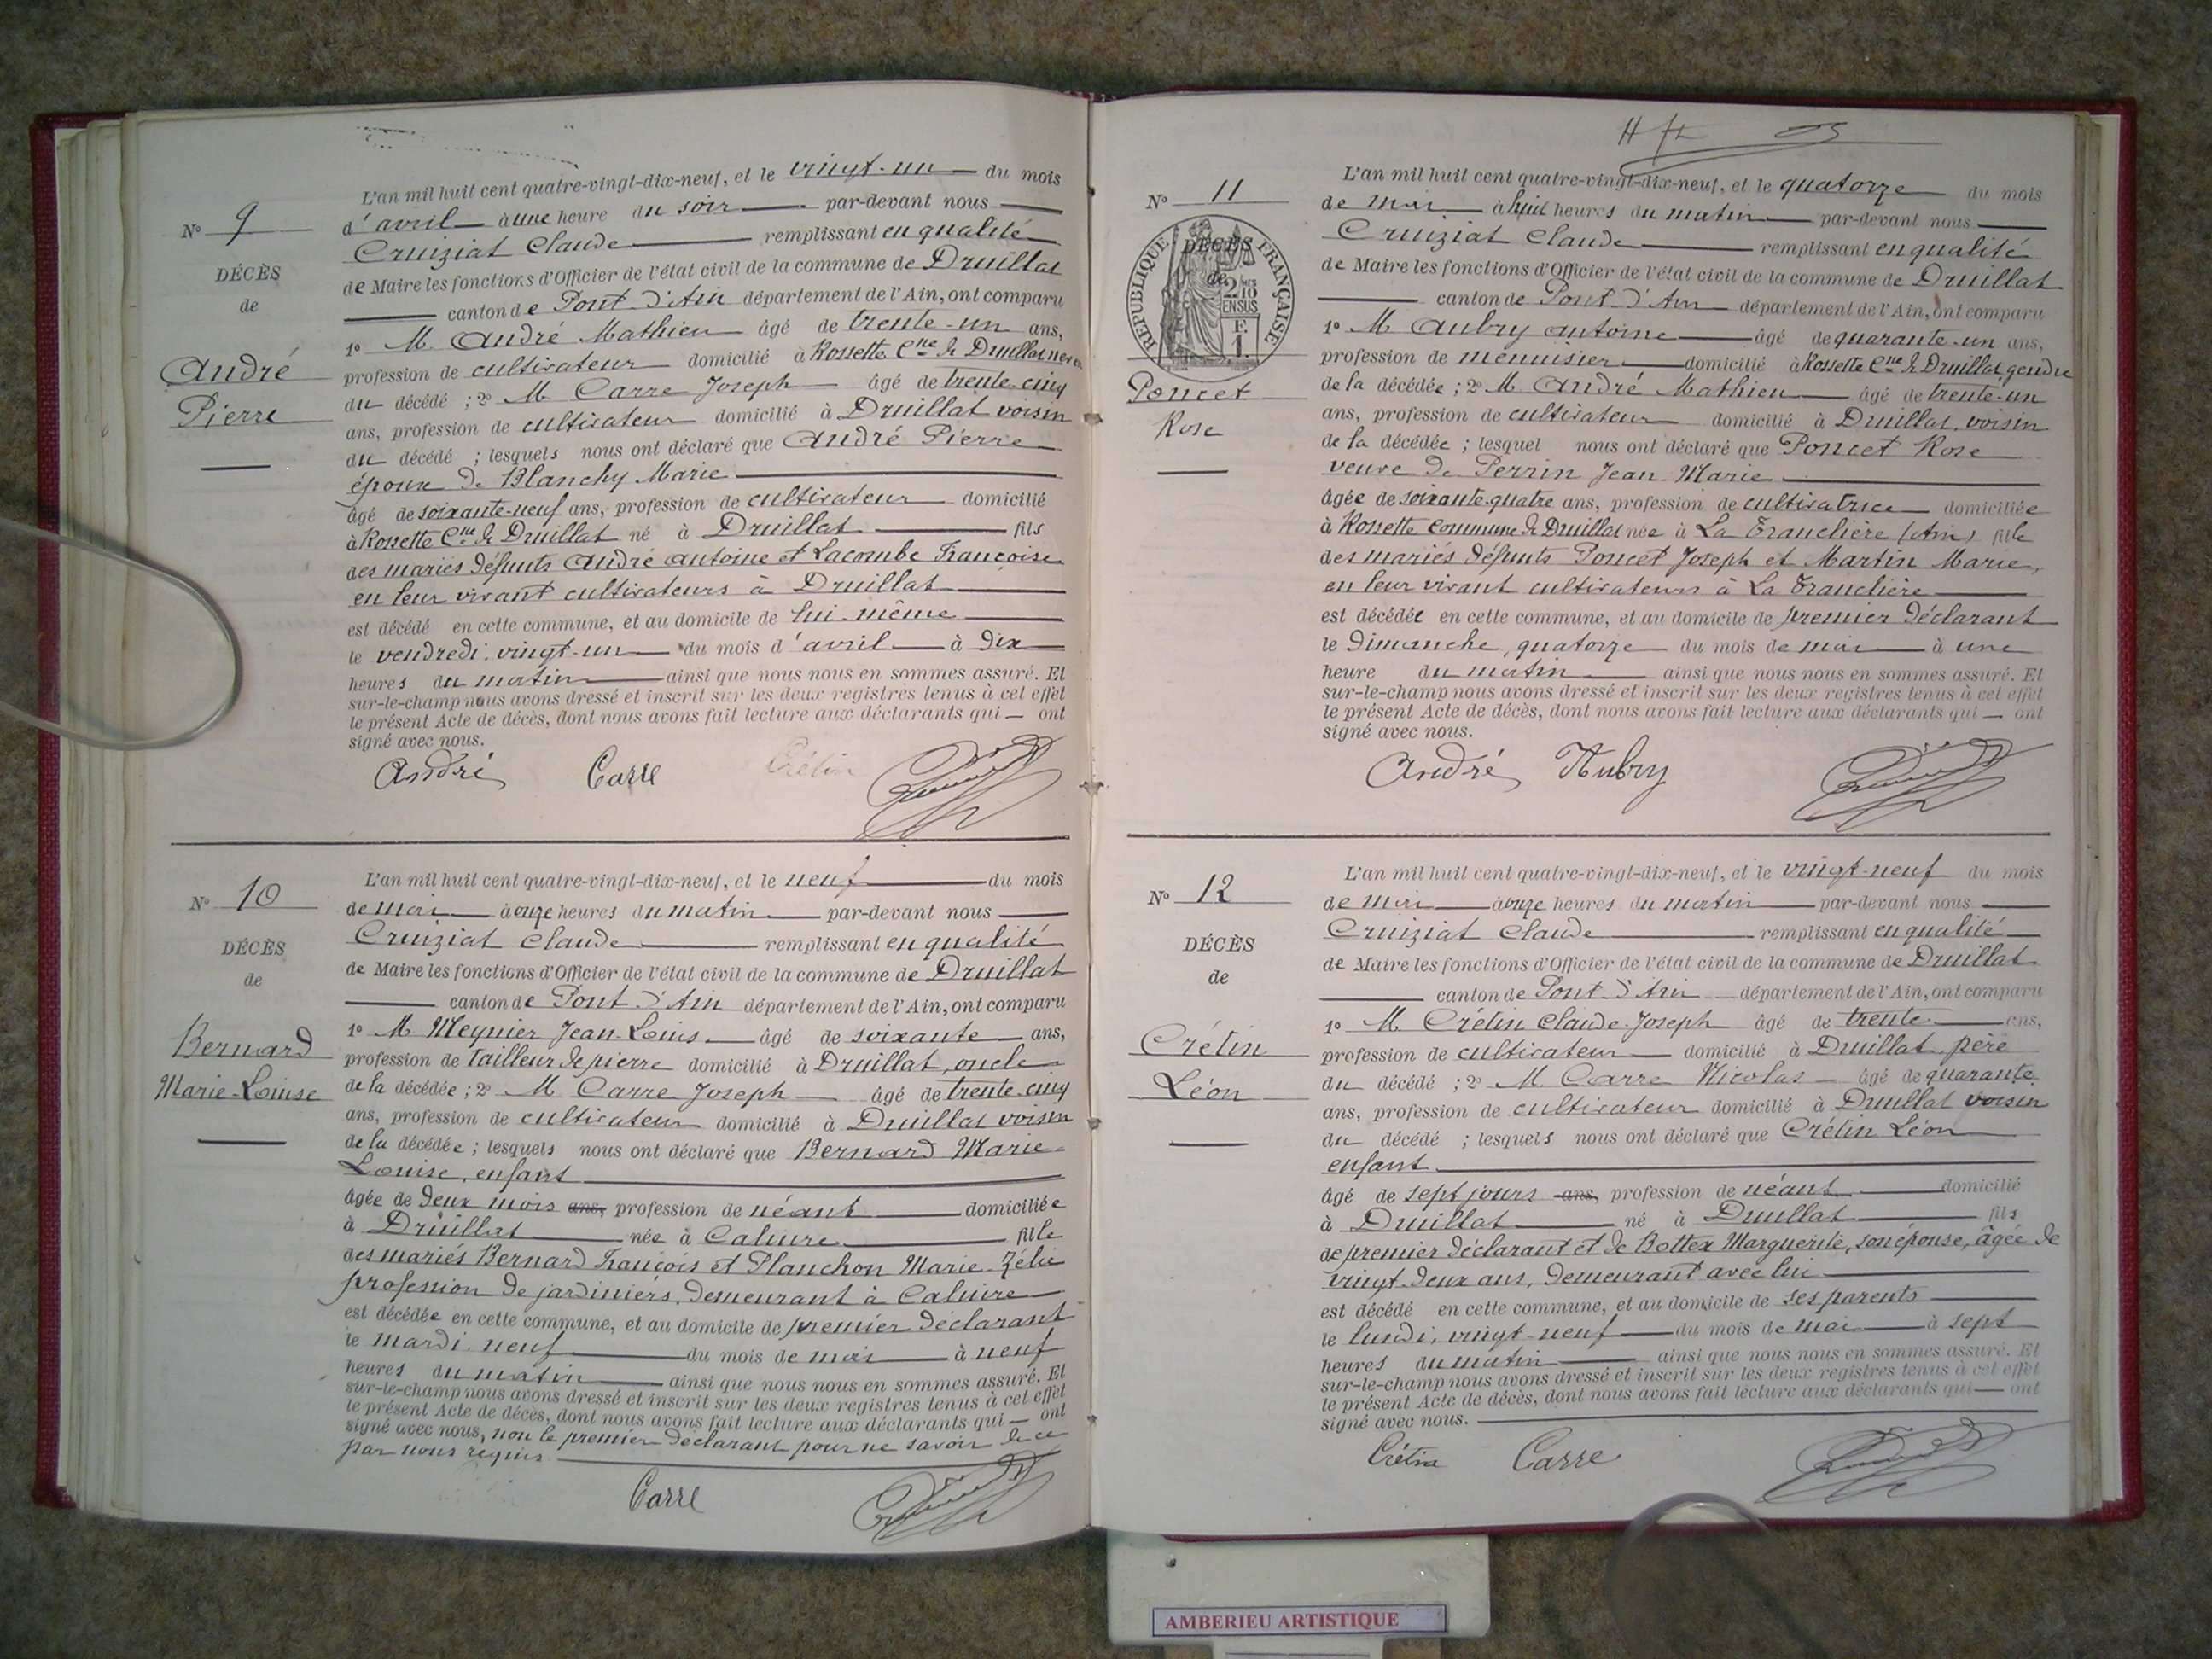 L'an mil huit cent quatre-vingt-dix-neuf, et le vingt-un du mois
d'avril à une heure du soir par-devant nous
Cruiziat Claude remplissant en qualité
de Maire les fonctions d'Officier de l'état civil de la commune de Druillat
canton de Pont d'Ain département de l'Ain, ont comparu
1o M. André Mathieu âgé de trente-un ans,
profession de cultivateur domicilié à Rossette Cne de Druillat neveu
du décédé ; 2o M. Carre Joseph âgé de trente-cinq
ans, profession de cultivateur domicilié à Druillat voisin
du décédé ; lesquels nous ont déclaré que André Pierre
époux de Blanchy Marie
âgé de soixante-neuf ans, profession de cultivateur domicilié
à Rossette Cne de Druillat né à Druillat fils
des mariés défunts André Antoine et Lacombe Françoise
en leur vivant cultivateurs à Druillat
est décédé en cette commune, et au domicile de lui-même
le vendredi, vingt-un du mois d'avril à dix
heures du matin ainsi que nous nous en sommes assuré. Et
sur-le-champ nous avons dressé et inscrit sur les deux registres tenus à cet effet
le présent Acte de décès, dont nous avons fait lecture aux déclarants qui ont
signé avec nous.
André Carre Crétin
No 9
DÉCÈS
de
André
Pierre
L'an mil huit cent quatre-vingt-dix-neuf, et le neuf du mois
de mai à onze heures du matin par-devant nous
Cruiziat Claude remplissant en qualité
de Maire les fonctions d'Officier de l'état civil de la commune de Druillat
canton de Pont d'Ain département de l'Ain, ont comparu
1o M. Meynier Jean-Louis âgé de soixante ans,
profession de Tailleur de pierre domicilié à Druillat, oncle
de la décédée ; 2o M. Carre Joseph âgé de trente-cinq
ans, profession de cultivateur domicilié à Druillat voisin
de la décédée ; lesquels nous ont déclaré que Bernard Marie-
Louise, enfant
âgée de deux mois ans, profession de néant domiciliée
à Druillat née à Caluire fille
des mariés Bernard François et Planchon Marie-Zélie
profession de jardiniers, demeurant à Caluire
est décédée en cette commune, et au domicile de premier déclarant
le mardi, neuf du mois de mai à neuf
heures du matin ainsi que nous nous en sommes assuré. Et
sur-le-champ nous avons dressé et inscrit sur les deux registres tenus à cet effet
le présent Acte de décès, dont nous avons fait lecture aux déclarants qui ont
signé avec nous, non le premier déclarant pour ne savoir de ce
par nous requis
Carre
No 10
DÉCÈS
de
Bernard
Marie-Louise
L'an mil huit cent quatre-vingt-dix-neuf, et le quatorze du mois
de mai à huit heures du matin par-devant nous
Cruiziat Claude remplissant en qualité
de Maire les fonctions d'Officier de l'état civil de la commune de Druillat
canton de Pont d'Ain département de l'Ain, ont comparu
1o M. Aubry Antoine âgé de quarante-un ans,
profession de menuisier domicilié à Rossette Cne de Druillat, gendre
de la décédée ; 2o M. André Mathieu âgé de trente-un
ans, profession de cultivateur domicilié à Druillat, voisin
de la décédée ; lesquel nous ont déclaré que Poncet Rose
veuve de Perrin Jean-Marie
âgée de soixante-quatre ans, profession de cultivatrice domiciliée
à Rossette commune de Druillat née à La Tranclière (Ain) fille
des mariés défunts Poncet Joseph et Martin Marie,
en leur vivant cultivateurs à La Tranclière
est décédée en cette commune, et au domicile de premier déclarant
le Dimanche, quatorze du mois de mai à une
heure du matin ainsi que nous nous en sommes assuré. Et
sur-le-champ nous avons dressé et inscrit sur les deux registres tenus à cet effet
le présent Acte de décès, dont nous avons fait lecture aux déclarants qui ont
signé avec nous.
André Aubry
No 11
DÉCÈS
de
RÉPUBLIQUE FRANÇAISE
2/10
EN SUS
F.
1.
Poncet
Rose
L'an mil huit cent quatre-vingt-dix-neuf, et le vingt-neuf du mois
de mai à onze heures du matin par-devant nous
Cruiziat Claude remplissant en qualité
de Maire les fonctions d'Officier de l'état civil de la commune de Druillat
canton de Pont d'Ain département de l'Ain, ont comparu
1o M. Crétin Claude-Joseph âgé de trente ans,
profession de cultivateur domicilié à Druillat, père
du décédé ; 2o M. Carre Nicolas âgé de quarante
ans, profession de cultivateur domicilié à Druillat voisin
du décédé ; lesquels nous ont déclaré que Crétin Léon
enfant
âgé de sept jours ans, profession de néant domicilié
à Druillat né à Druillat fils
de premier déclarant et de Bottex Marguerite, son épouse, âgée de
vingt-deux ans, demeurant avec lui
est décédé en cette commune, et au domicile de ses parents
le lundi, vingt-neuf du mois de mai à sept
heures du matin ainsi que nous nous en sommes assuré. Et
sur-le-champ nous avons dressé et inscrit sur les deux registres tenus à cet effet
le présent Acte de décès, dont nous avons fait lecture aux déclarants qui ont
signé avec nous.
Crétin Carre
No 12
DÉCÈS
de
Crétin
Léon
AMBERIEU ARTISTIQUE